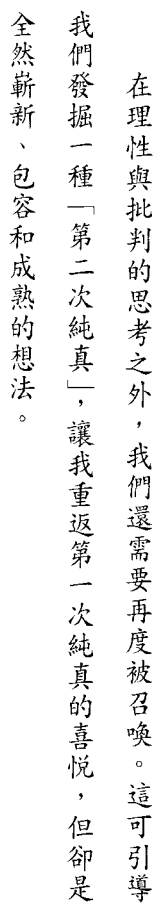 在理性與批判的思考之外，我們還需要再度被召喚。這可引導
我們發掘一種「第二次純真」，讓我重返第一次純真的喜悅，但卻是
全然嶄新、包容和成熟的想法。